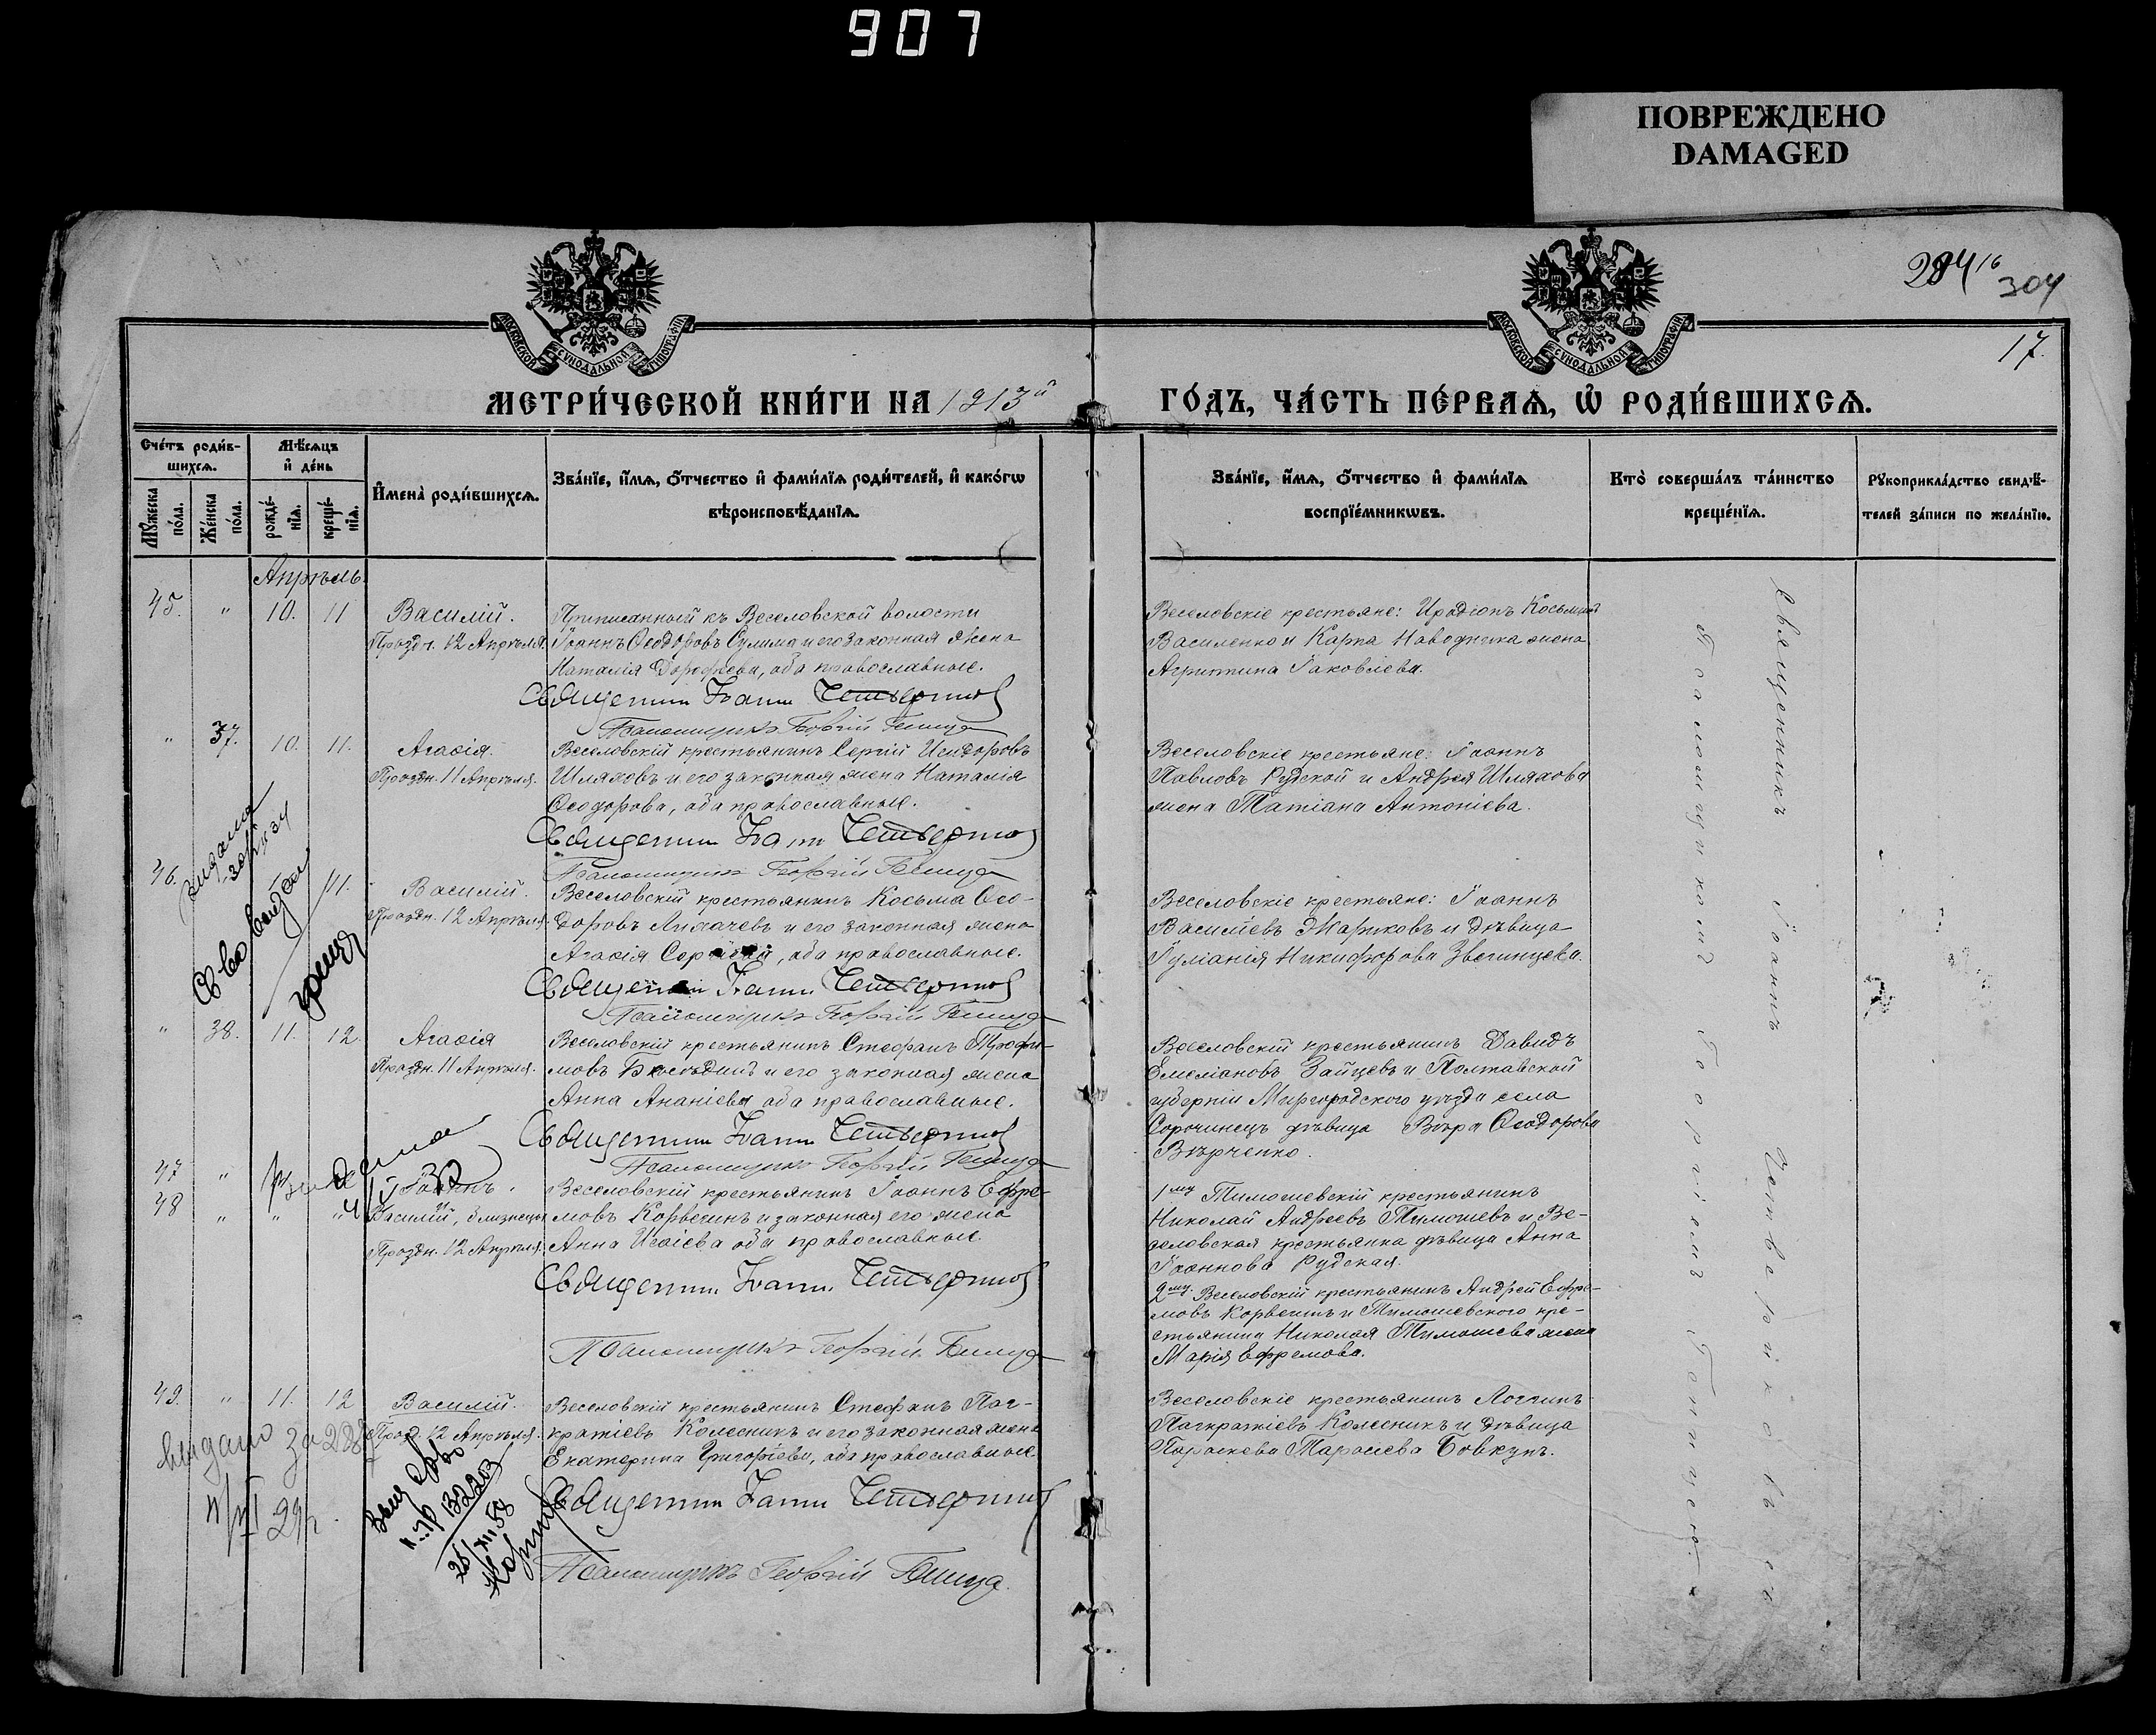 907
ПОВРЕЖДЕНО
DAMAGED
304
17.
МОСКОВСКОЙ СѴНОДАЛЬНОЙ ТИПОГРАФІИ
МОСКОВСКОЙ СѴНОДАЛЬНОЙ ТИПОГРАФІИ
МЕТРИ́ЧЕСКОЙ КНИ́ГИ НА 1913й
ГО́ДЪ, ЧА́СТЬ ПЕ́РВАѦ, Ѡ҆ РОДИ́ВШИХСѦ.
Сче́тъ роди́в-
шихсѧ.
Мѣ́сѧцъ
и҆ де́нь
Мꙋ́жеска по́ла.
Же́нска по́ла.
рожде́-нїѧ.
креще́-нїѧ.
И҆мена̀ роди́вшихсѧ.
Зва́нїе, и҆́мѧ, ѻ҆́тчество и҆ фами́лїѧ роди́телей, и҆ како́гѡ
вѣроисповѣ́данїѧ.
Зва́нїе, и҆́мѧ, ѻ҆́тчество и҆ фами́лїѧ
воспрїе́мникѡвъ.
Кто̀ соверша́лъ та́инство
креще́нїѧ.
Рꙋкоприкла́дство свидѣ́-
телей за́писи по жела́нїю.
Апрѣль
45. " 10. 11 Василій.
Праздн. 12 Апрѣля.
Приписанный къ Веселовской волости
Іоаннъ Ѳеодоровъ Сулима и его законная жена
Наталія Дорофеева, оба православные.
Священник Іоанн Четвериков
Псаломщикъ Георгій
Веселовскіе крестьяне: Иродіонъ Косьминъ
Василенко и Карпа Наводника жена
Агриппина Іаковлева.
" 37. 10. 11. Агаѳія.
Праздн. 11 Апрѣля.
Веселовскій крестьянинъ Сергій Исидоровъ
Шляховъ и его законная жена Наталія
Ѳеодорова, оба православные.
Священник Іоанн Четвериков
Псаломщикъ Георгій
Веселовскіе крестьяне: Іоаннъ
Павловъ Рудской и Андрея Шляхова
жена Татіана Антоніева.
46. 11. Василій.
Праздн. 12 Апрѣля.
Веселовскій крестьянинъ Косьма Ѳео-
доровъ Лихачевъ и его законная жена
Агаѳія, оба православные.
Священник Іоанн Четвериков
Псаломщикъ Георгій
Веселовскіе крестьяне: Іоаннъ
Василіевъ Жариковъ и дѣвица
Іуліанія Никифорова Звегинцева.
" 38. 11. 12. Агаѳія
Праздн. 11 Апрѣля.
Веселовскій крестьянинъ Стефанъ Трофи-
мовъ и его законная жена
Анна Ананіева оба православные.
Священник Іоанн Четвериков
Псаломщикъ Георгій
Веселовскій крестьянинъ Давидъ
Емеліановъ Зайцевъ и Полтавской
губерніи Миргородского уѣзда села
Сорочинецъ дѣвица Вѣра Ѳеодорова
Вѣрченко.
47 " Іоаннъ.
48 " " " Василій, близнецы
Праздн. 12 Апрѣля.
Веселовскій крестьянинъ Іоаннъ Ефре-
мовъ Корвегинъ и законная его жена
Анна Исаіева оба православные.
Священник Іоанн Четвериков
Псаломщикъ Георгій
1му Тимошевскій крестьянинъ
Николай Андреевъ Тимошевъ и Ве-
селовская крестьянка дѣвица Анна
Іоаннова Рудская.
2му Веселовскій крестьянинъ Андрей Ефре-
мовъ Корвегинъ и Тимошевского кре-
стьянина Николая Тимошева жена
Марія Ефремова.
49. " 11. 12 Василій.
Празд. 12 Апрѣля.
Веселовскій крестьянинъ Стефанъ Пан-
кратіевъ Колесникъ и его законная жена
Екатерина Григоріева, оба православные
Священник Іоанн Четвериков
Псаломщикъ Георгій
Веселовскіе крестьянинъ Логгинъ
Панкратіевъ Колесникъ и дѣвица
Параскева Тарасіева Бовкунъ.
Священникъ Іоаннъ Четвериковъ съ
Псаломщикомъ Георгіемъ